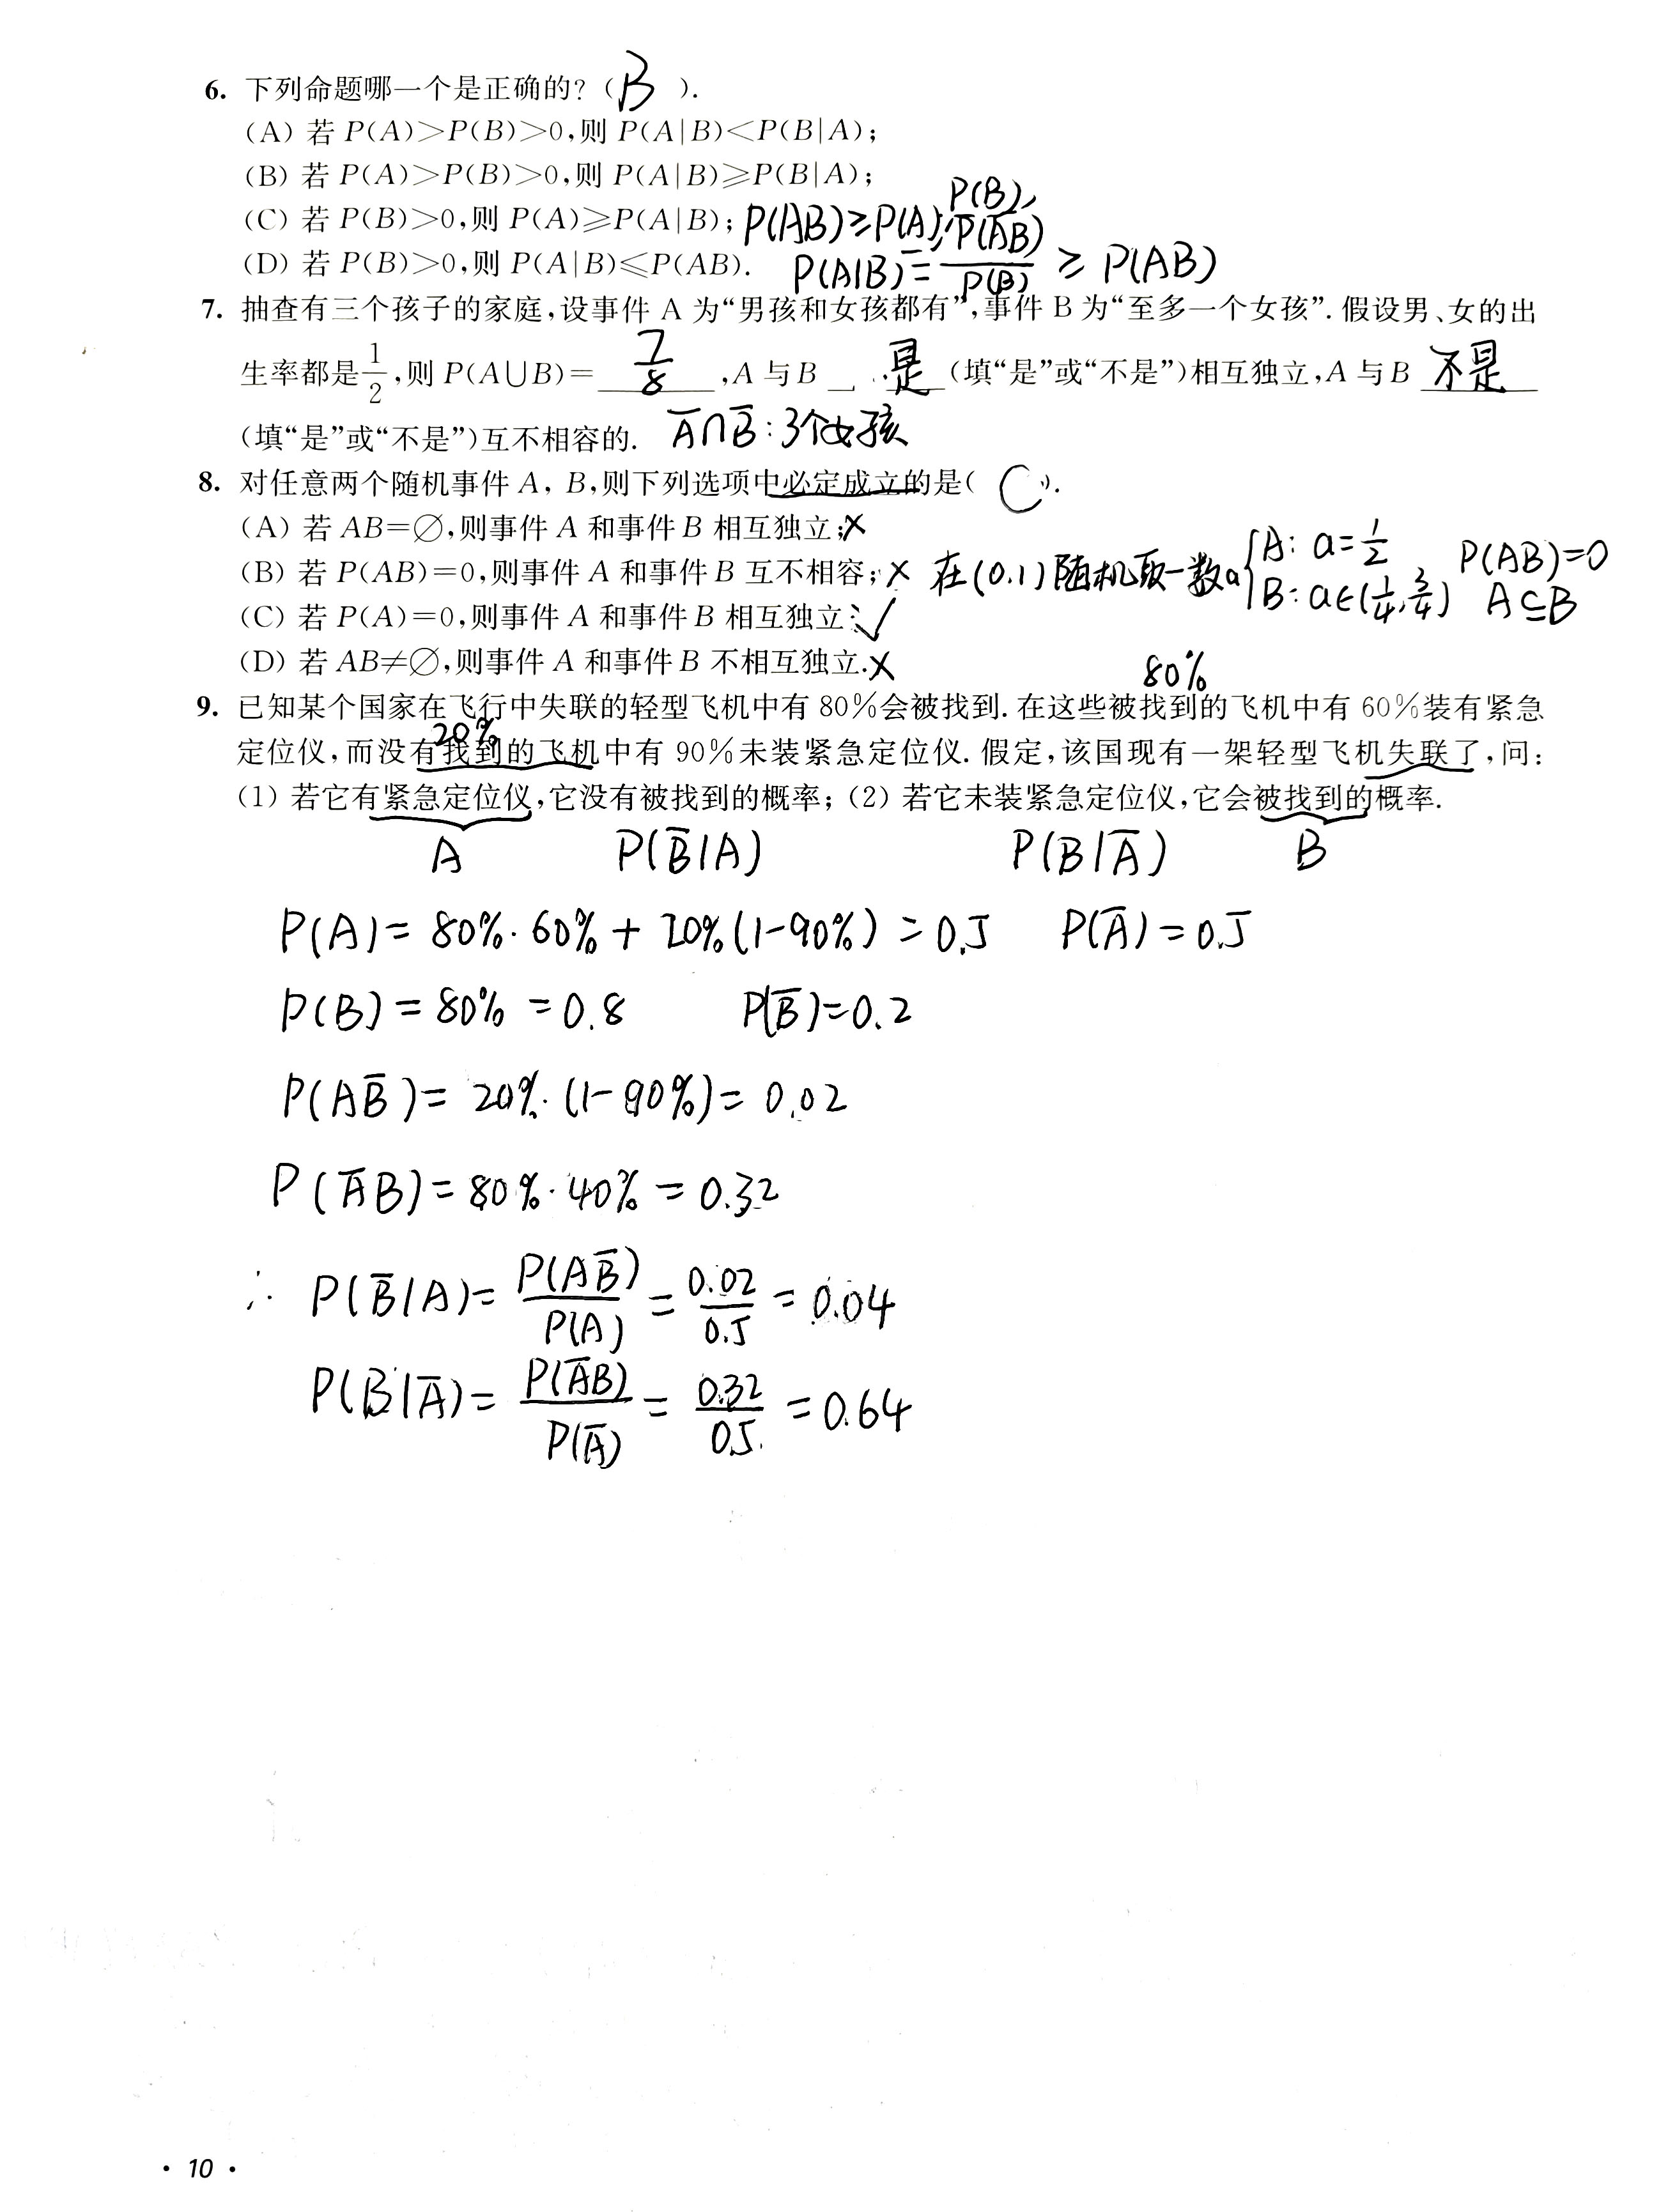 6. 下列命题哪一个是正确的?( B ).
(A) 若 P(A)>P(B)>0,则 P(A|B)<P(B|A);
(B) 若 P(A)>P(B)>0,则 P(A|B)≥P(B|A);
(C) 若 P(B)>0,则 P(A)≥P(A|B); P(AB)≥P(A)P(B)
(D) 若 P(B)>0,则 P(A|B)≤P(AB). P(A|B)=P(AB)/P(B) ≥ P(AB)
7. 抽查有三个孩子的家庭,设事件 A 为“男孩和女孩都有”,事件 B 为“至多一个女孩”. 假设男、女的出
生率都是1/2,则 P(A∪B)= 7/8 ,A 与 B 是 (填“是”或“不是”)相互独立,A 与 B 不是
(填“是”或“不是”)互不相容的. A̅∩B̅:3个女孩
8. 对任意两个随机事件 A, B,则下列选项中必定成立的是( C ).
(A) 若 AB=∅,则事件 A 和事件 B 相互独立;×
(B) 若 P(AB)=0,则事件 A 和事件 B 互不相容;× 在(0.1)随机取一数a {A: a=1/2 B: a∈(1/4,3/4) P(AB)=0 A⊆B
(C) 若 P(A)=0,则事件 A 和事件 B 相互独立;✓
(D) 若 AB≠∅,则事件 A 和事件 B 不相互独立.×
80%
9. 已知某个国家在飞行中失联的轻型飞机中有 80%会被找到. 在这些被找到的飞机中有 60%装有紧急
20%
定位仪,而没有找到的飞机中有 90%未装紧急定位仪. 假定,该国现有一架轻型飞机失联了,问:
(1) 若它有紧急定位仪,它没有被找到的概率;(2) 若它未装紧急定位仪,它会被找到的概率.
A P(B̅|A) P(B|A̅) B
P(A)= 80%·60%+ 20%(1-90%) = 0.5 P(A̅)=0.5
P(B)=80% =0.8 P(B̅)=0.2
P(AB̅)= 20%·(1-90%)= 0.02
P(A̅B)=80%·40% = 0.32
∴ P(B̅|A)= P(AB̅)/P(A) = 0.02/0.5 = 0.04
P(B|A̅)= P(A̅B)/P(A̅) = 0.32/0.5 =0.64
· 10 ·